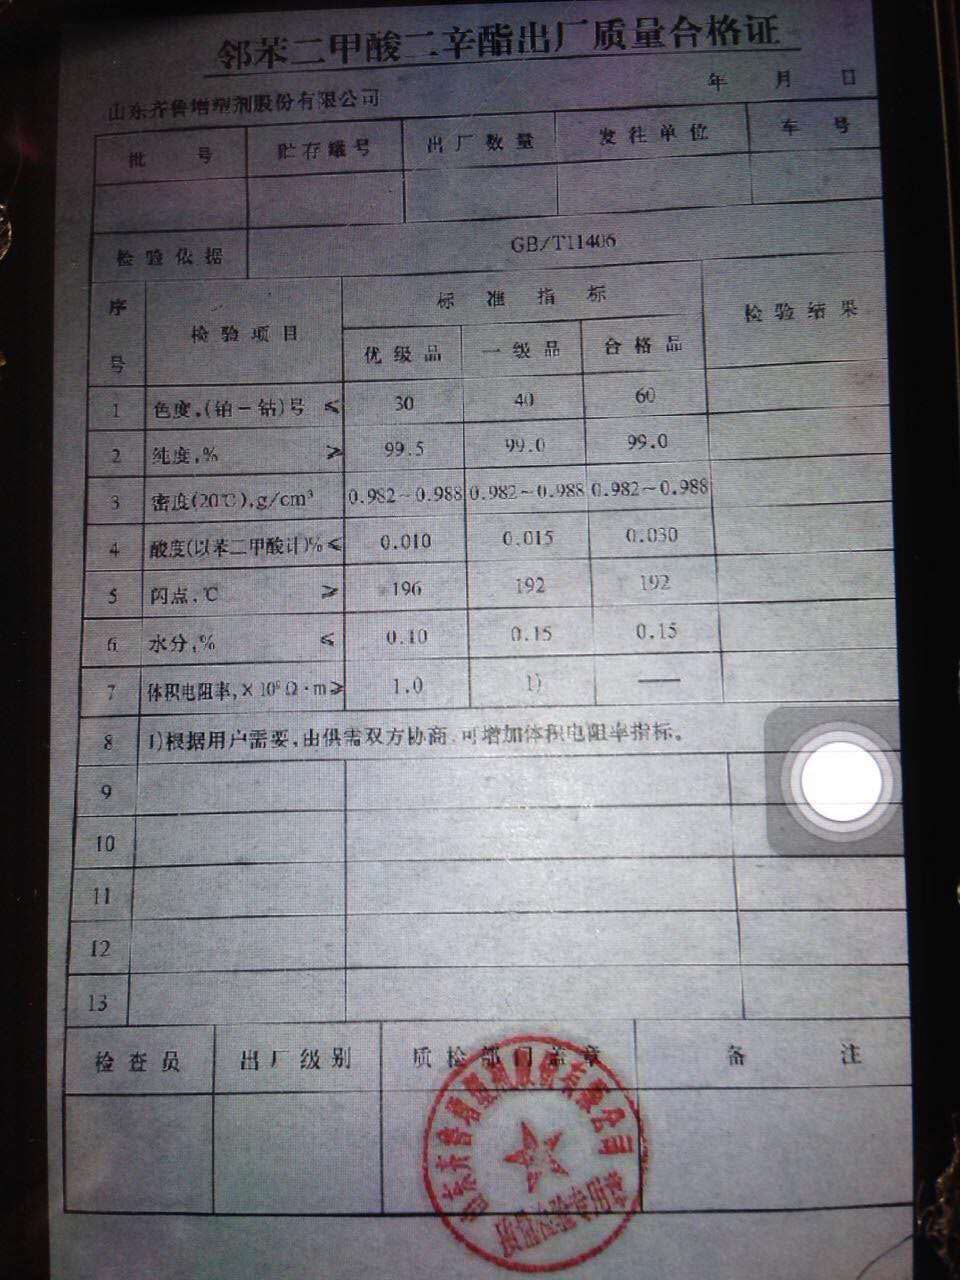 邻苯二甲酸二辛酯出厂质量合格证
山东齐鲁增塑剂股份有限公司 年 月 日
批 号 贮存罐号 出厂数量 发往单位 车 号
检验依据 GB/T11406
序号 检验项目 标准指标 检验结果
优级品 一级品 合格品
1 色度,(铂-钴)号 ≤ 30 40 60
2 纯度,% ≥ 99.5 99.0 99.0
3 密度(20℃),g/cm³ 0.982~0.988 0.982~0.988 0.982~0.988
4 酸度(以苯二甲酸计)% ≤ 0.010 0.015 0.030
5 闪点,℃ ≥ 196 192 192
6 水分,% ≤ 0.10 0.15 0.15
7 体积电阻率,×10⁹Ω·m ≥ 1.0 1) —
8 1)根据用户需要,由供需双方协商,可增加体积电阻率指标。
9
10
11
12
13
检查员 出厂级别 质检部门盖章 备 注
山东齐鲁增塑剂股份有限公司
质量检验专用章